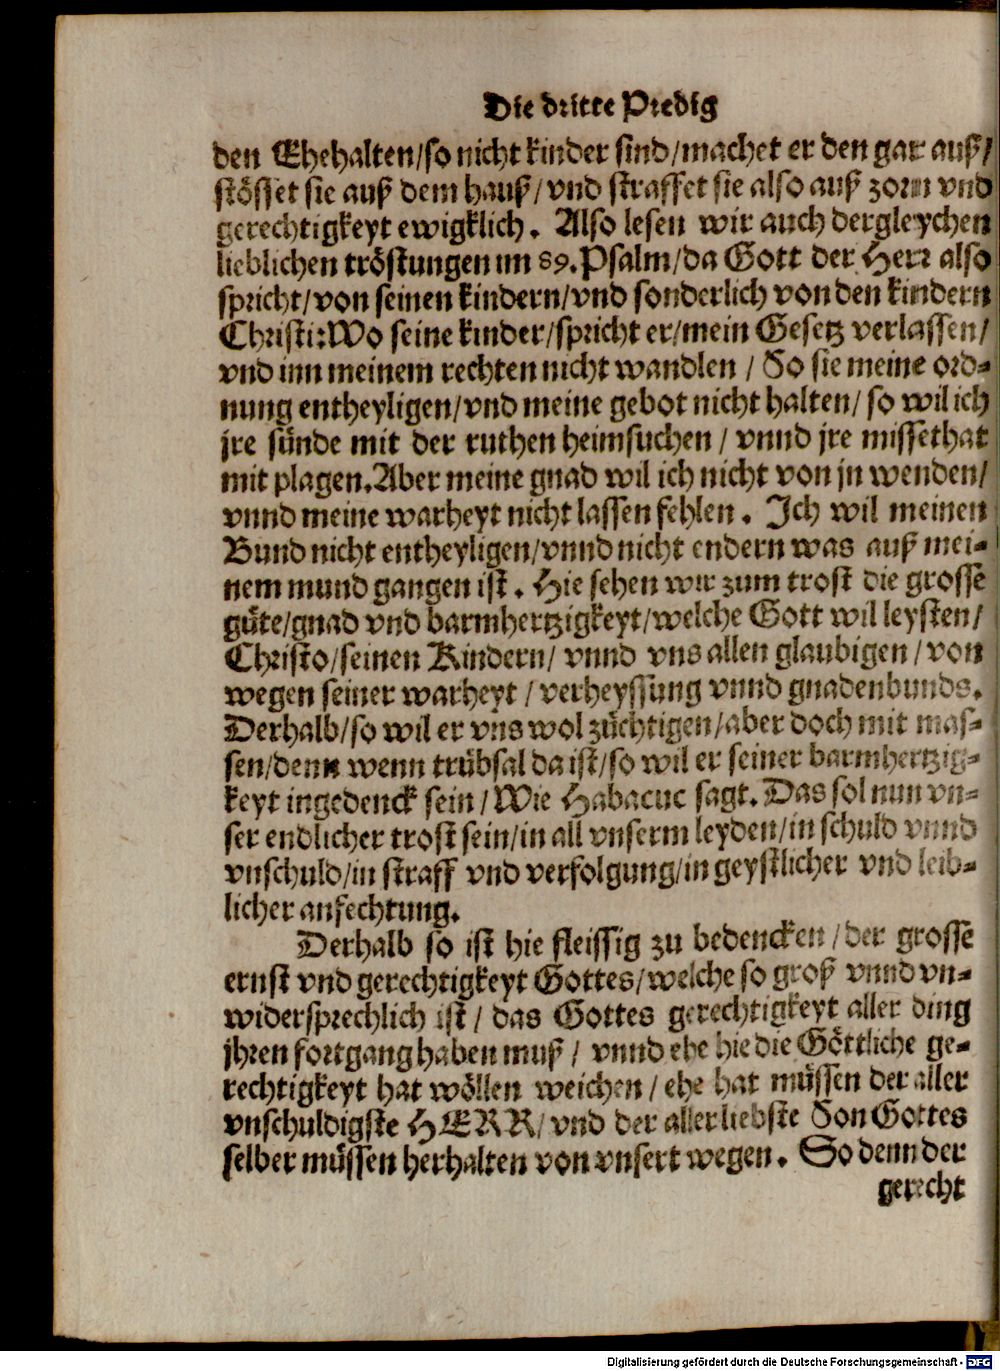 Die dritte Predig
den Ehehalten/so nicht kinder sind/machet er den gar auß/
stösset sie auß dem hauß/vnd straffet sie also auß zorn vnd
gerechtigkeyt ewigklich. Also lesen wir auch dergleychen
lieblichen tröstungen im 89. Psalm/da Gott der Herr also
spricht/von seinen kindern/vnd sonderlich von den kindern
Christi: Wo seine kinder/spricht er/mein Gesetz verlassen/
vnd inn meinem rechten nicht wandlen / So sie meine ord-
nung entheyligen/vnd meine gebot nicht halten/ so wil ich
jre sünde mit der ruthen heimsuchen / vnnd jre missethat
mit plagen. Aber meine gnad wil ich nicht von jn wenden/
vnnd meine warheyt nicht lassen fehlen. Ich wil meinen
Bund nicht entheyligen/vnnd nicht endern was auß mei-
nem mund gangen ist. Hie sehen wir zum trost die grosse
güte/gnad vnd barmhertzigkeyt/welche Gott wil leysten/
Christo/seinen Kindern/ vnnd vns allen glaubigen / von
wegen seiner warheyt / verheyssung vnnd gnadenbunds.
Derhalb/so wil er vns wol züchtigen/aber doch mit mas-
sen/denn wenn trübsal da ist/so wil er seiner barmhertzig-
keyt ingedenck sein / Wie Habacuc sagt. Das sol nun vn-
ser endlicher trost sein/in all vnserm leyden/in schuld vnnd
vnschuld/in straff vnd verfolgung/in geystlicher vnd leib-
licher anfechtung.
Derhalb so ist hie fleissig zu bedencken / der grosse
ernst vnd gerechtigkeyt Gottes/welche so groß vnnd vn-
widersprechlich ist / das Gottes gerechtigkeyt aller ding
jhren fortgang haben muß / vnnd ehe hie die Göttliche ge-
rechtigkeyt hat wöllen weichen / ehe hat müssen der aller
vnschuldigste HERR/ vnd der allerliebste Son Gottes
selber müssen herhalten von vnsert wegen. So denn der
gerecht
Digitalisierung gefördert durch die Deutsche Forschungsgemeinschaft - DFG